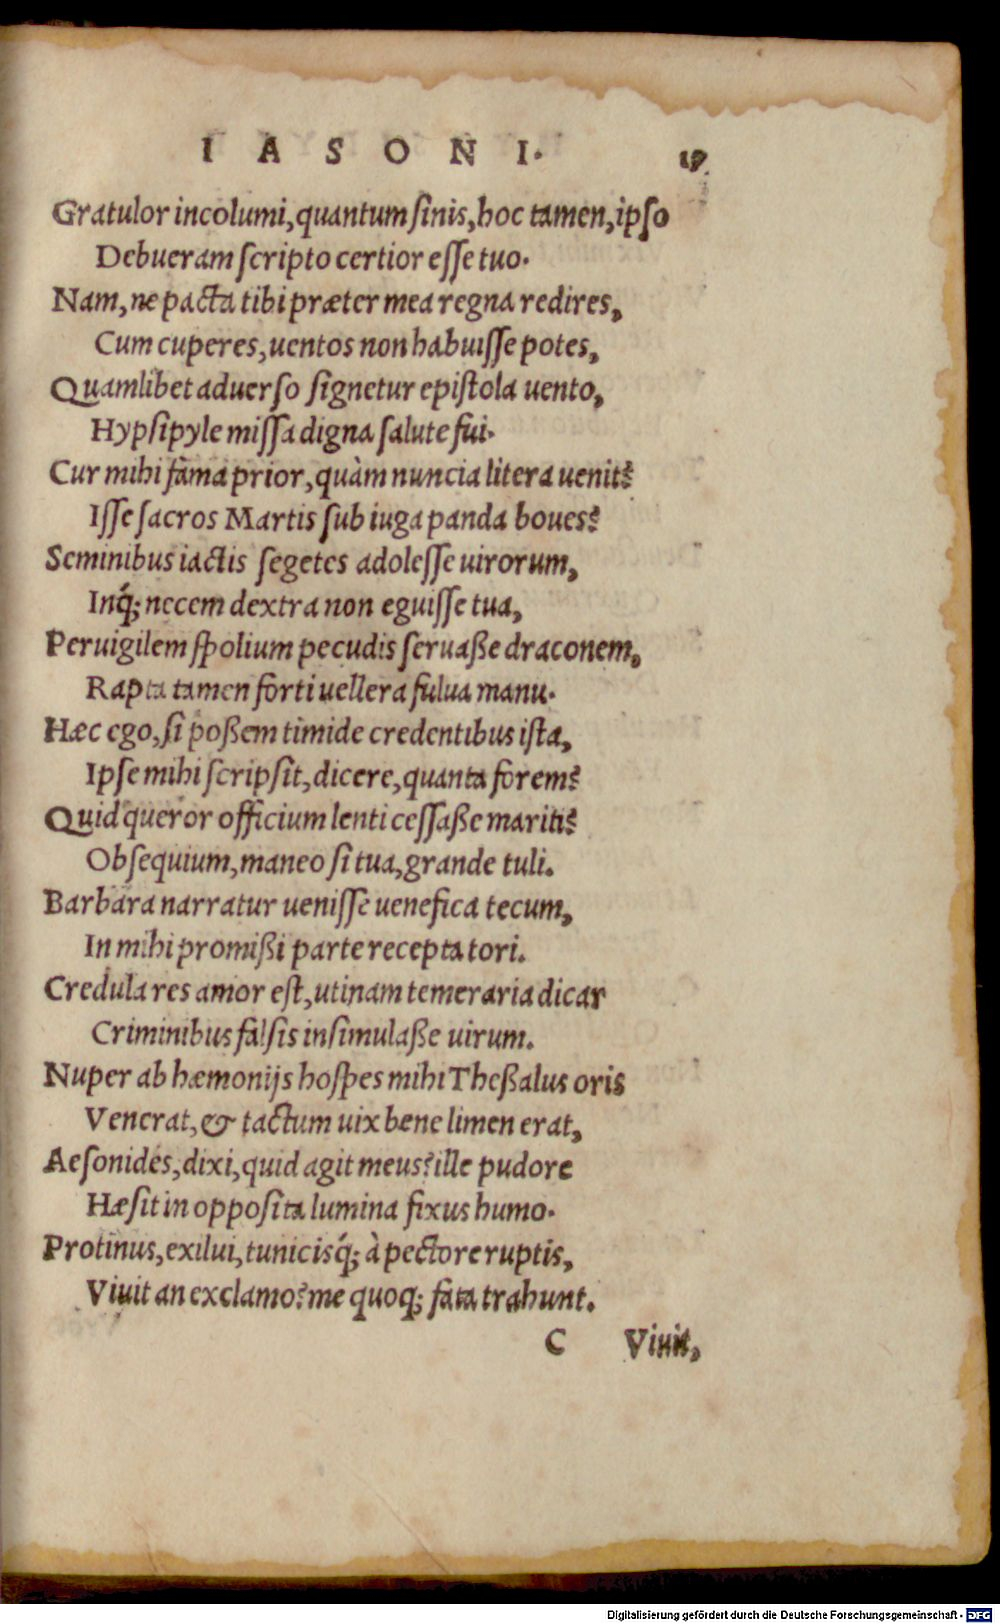 IASONI. 17
Gratulor incolumi, quantum ſinis, hoc tamen, ipſo
Debueram ſcripto certior eſſe tuo.
Nam, ne pacta tibi præter mea regna redires,
Cum cuperes, uentos non habuiſſe potes,
Quamlibet aduerſo ſignetur epiſtola uento,
Hypſipyle miſſa digna ſalute fui.
Cur mihi fama prior, quàm nuncia litera uenit?
Iſſe ſacros Martis ſub iuga panda boues?
Seminibus iactis ſegetes adoleſſe uirorum,
Inq́; necem dextra non eguiſſe tua,
Peruigilem ſpolium pecudis ſeruaße draconem,
Rapta tamen forti uellera fulua manu.
Hæc ego, ſi poßem timide credentibus iſta,
Ipſe mihi ſcripſit, dicere, quanta forem?
Quid queror officium lenti ceſſaße mariti?
Obſequium, maneo ſi tua, grande tuli.
Barbara narratur ueniſſe uenefica tecum,
In mihi promißi parte recepta tori.
Credula res amor eſt, utinam temeraria dicar
Criminibus falſis inſimulaße uirum.
Nuper ab hæmonijs hoſpes mihi Theßalus oris
Venerat, & tactum uix bene limen erat,
Aeſonides, dixi, quid agit meus? ille pudore
Hæſit in oppoſita lumina fixus humo.
Protinus, exilui, tunicisq́; à pectore ruptis,
Viuit an exclamo? me quoq; fata trahunt.
C Viuit,
Digitalisierung gefördert durch die Deutsche Forschungsgemeinschaft - DFG